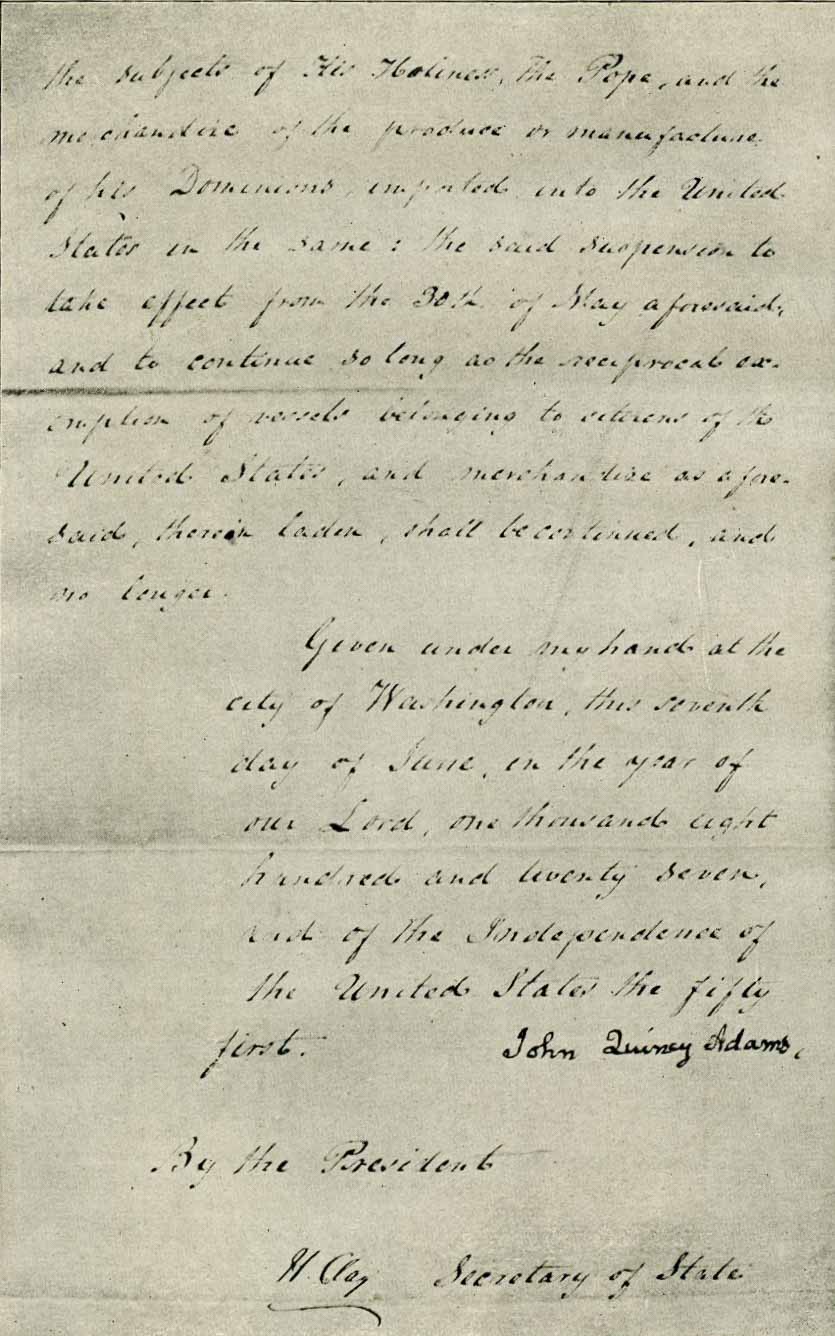 the subjects of His Holiness, the Pope, and the
merchandize of the produce or manufacture
of his Dominions, imported into the United
States in the same: the said suspension to
take effect from the 30th of May aforesaid,
and to continue so long as the reciprocal ex-
emption of vessels belonging to citizens of the
United States, and merchandize as afore-
said, therein laden, shall be continued, and
no longer.
Given under my hand at the
city of Washington, this seventh
day of June, in the year of
our Lord, one thousand eight
hundred and twenty seven,
and of the Independence of
the United States the fifty
first.
John Quincy Adams.
By the President
H. Clay Secretary of State